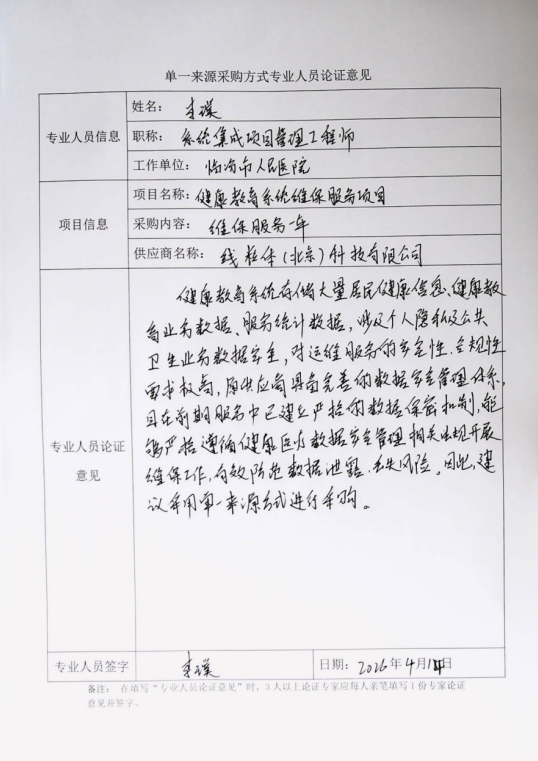 单一来源采购方式专业人员论证意见
专业人员信息
姓名：李瑛
职称：系统集成项目管理工程师
工作单位：临汾市人民医院
项目信息
项目名称：健康教育系统维保服务项目
采购内容：维保服务一年
供应商名称：线粒体（北京）科技有限公司
专业人员论证
意见
健康教育系统存储大量居民健康信息、健康教
育业务数据、服务统计数据，涉及个人隐私及公共
卫生业务数据安全，对运维服务的安全性、合规性
要求极高，原供应商具备完善的数据安全管理体系，
且在前期服务中已建立严格的数据保密机制，能
够严格遵循健康医疗数据安全管理相关法规开展
维保工作，有效防范数据泄露、丢失风险。因此，建
议采用单一来源方式进行采购。
专业人员签字
李瑛
日期：2026年4月日
备注： 在填写“专业人员论证意见”时，3人以上论证专家应每人亲笔填写1份专家论证
意见并签字。